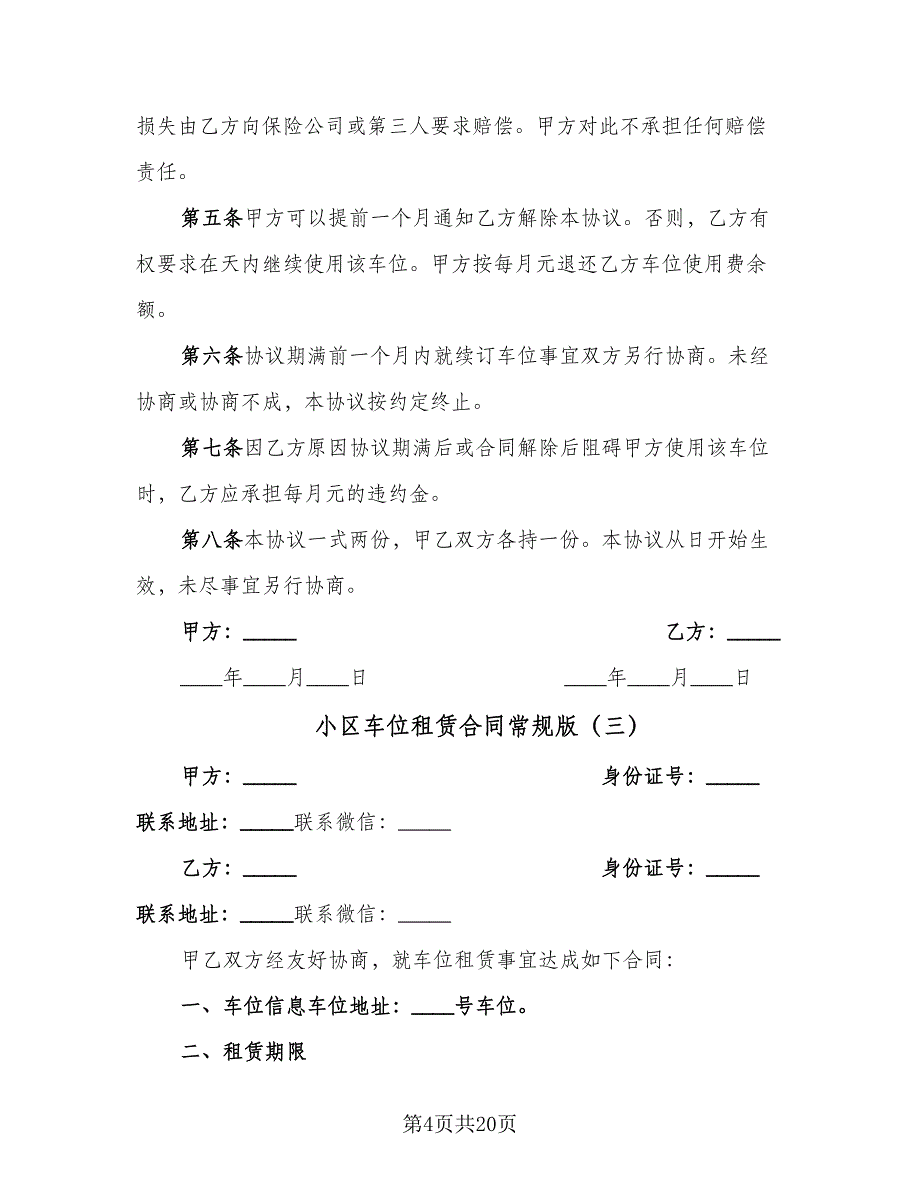 损失由乙方向保险公司或第三人要求赔偿。甲方对此不承担任何赔偿
责任。
第五条甲方可以提前一个月通知乙方解除本协议。否则，乙方有
权要求在天内继续使用该车位。甲方按每月元退还乙方车位使用费余
额。
第六条协议期满前一个月内就续订车位事宜双方另行协商。未经
协商或协商不成，本协议按约定终止。
第七条因乙方原因协议期满后或合同解除后阻碍甲方使用该车位
时，乙方应承担每月元的违约金。
第八条本协议一式两份，甲乙双方各持一份。本协议从日开始生
效，未尽事宜另行协商。
甲方：_____ 乙方：_____
____年____月____日 ____年____月____日
小区车位租赁合同常规版（三）
甲方：_____ 身份证号：_____
联系地址：_____联系微信：_____
乙方：_____ 身份证号：_____
联系地址：_____联系微信：_____
甲乙双方经友好协商，就车位租赁事宜达成如下合同：
一、车位信息车位地址：____号车位。
二、租赁期限
第4页共20页